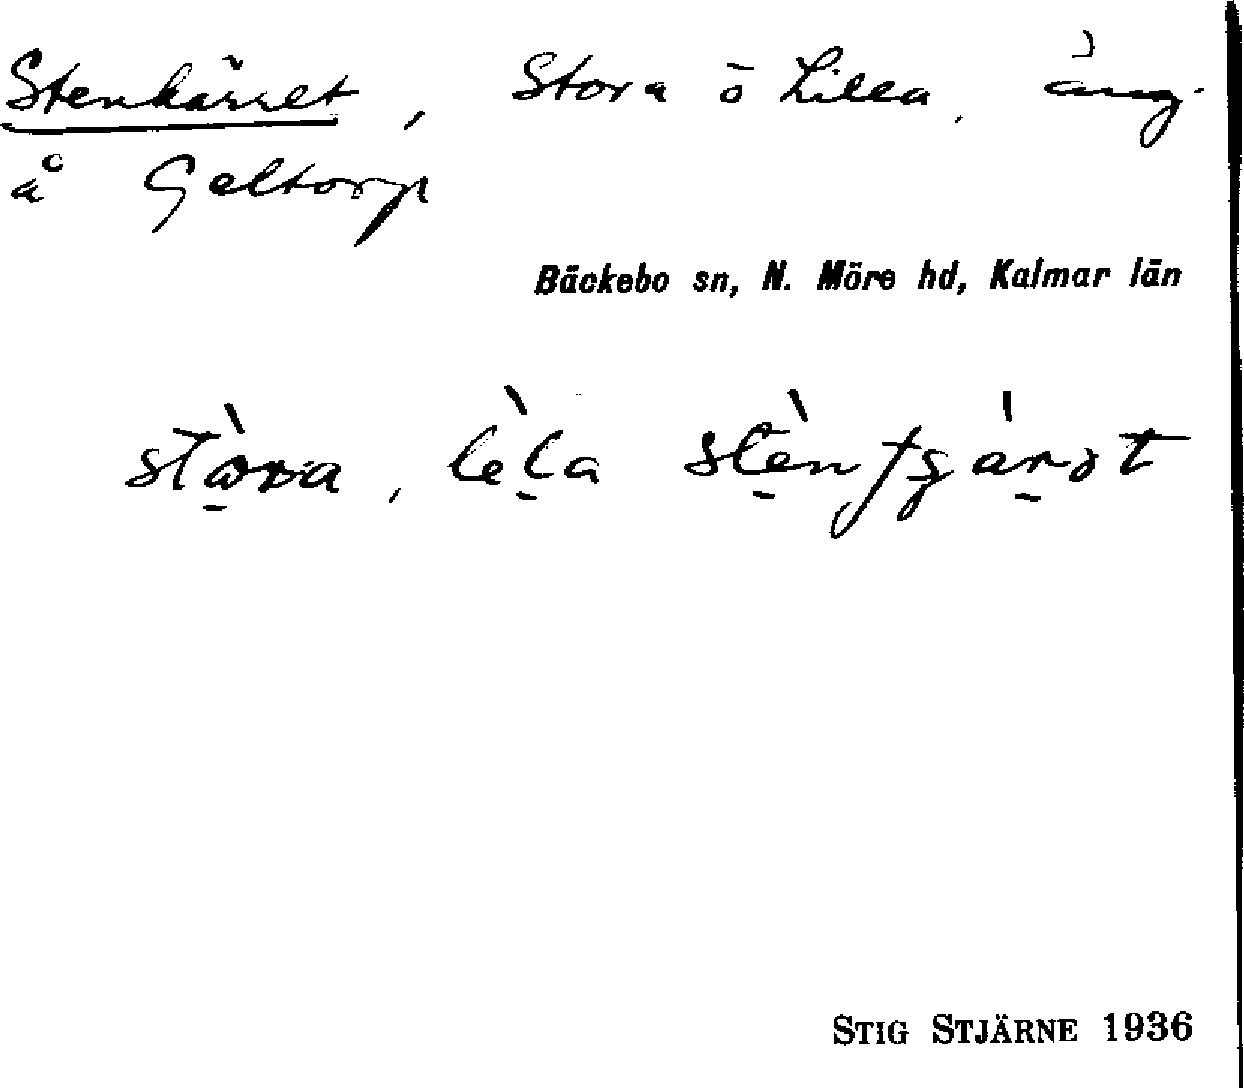 Stenkärret, Stora ö Lilla, äng
å Geltorp
Bäckebo sn, N. Möre hd, Kalmar län
stora, lela
STIG STJÄRNE 1936